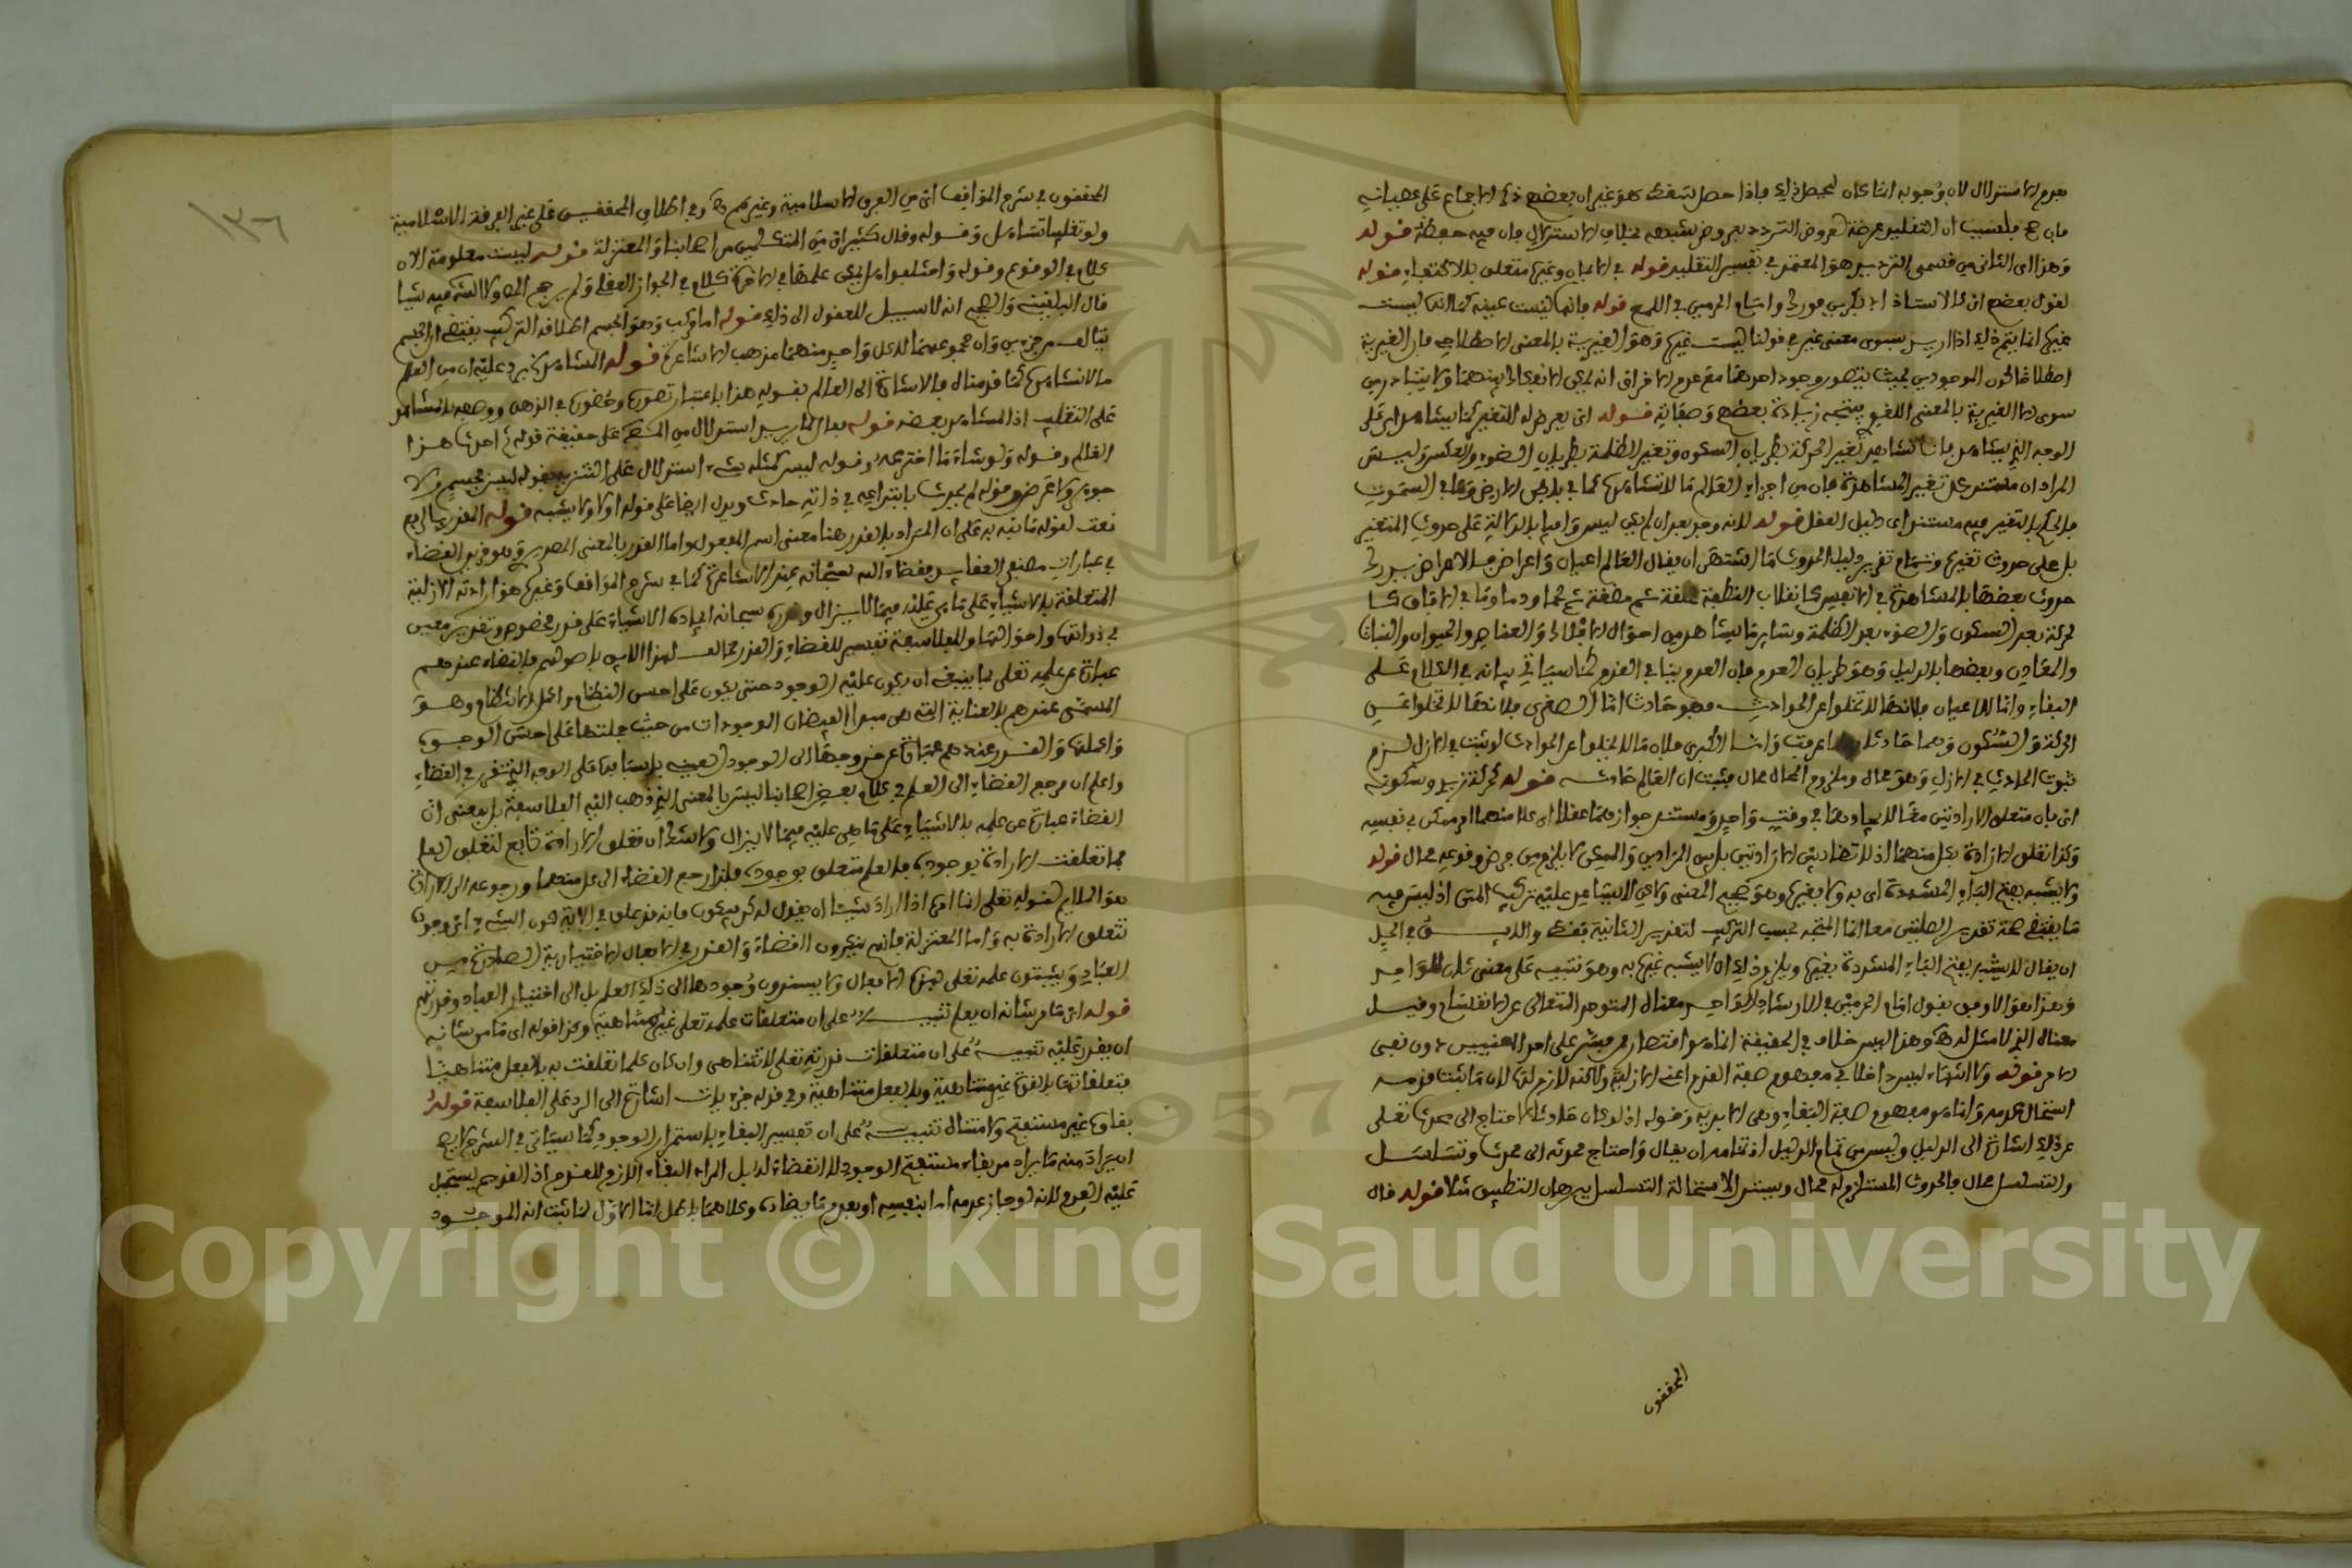 بعدم الاستدلال لان وجوبه انما كان لتحصيل ذلك فاذا حصل سقط هو غير ان بعضهم ذكر الاجماع على عصيانه
التقليد عرضة لعروض التردد بعروض شبهة بخلاف الاستدلال فان فيه حفظه قوله
وهذا اى الثانى من قسمى الترديد هو المعتمد فى تفسير التقليد قوله فى الاعيان وغيرها متعلق بالاكتفاء قوله
لقول بعضهم اى كالاستاذ ابى بكر بن فورك وامام الحرمين فى اللمع قوله فانها ليست عينه كما انها ليست
غيرها انما يتم ذلك اذا اريد سوى معنى غير فى قولنا ليست غيرها وهو الغيرية بالمعنى الاصطلاحى فان الغيرية
اصطلاحا كون الموجودين بحيث يتصور وجود احدهما مع عدم الاخر اى انه يمكن الانفكاك بينهما ولا يتبادر من
سوى الا الغيرية بالمعنى اللغوى بعضهم وصفاته قوله اى يعرض له التغير كما يشاهد اى على
الوجه الذى يشاهد فانا نشاهد تغير الحركة بطريان السكون وتغير الظلمة بطريان الضوء والعكس وليس
المراد ان مستند كل تغير المشاهدة فان من اجزاء العالم ما لا نشاهده كما فى باطن الارض وما فى السموت
فالحكم بالتغير فيه مستند الى دليل العقل قوله لانه وجد بعد ان لم يكن ليس وافيا بالدلالة على حدوث المتغير
بل على حدوث تغيره وتمام تقرير دليل الحدوث ما اشتهر ان يقال العالم اعيان واعراض فالاعراض يدرك
حدوث بعضها بالمشاهدة فى الانفس كانقلاب النطفة علقة ثم مضغة ثم لحما ودما وما فى الافاق كا
لحركة بعد السكون والضوء بعد الظلمة وساير ما يشاهد من احوال الافلاك والعناصر والحيوان والنبات
والمعادن وبعضها بالدليل وهو طريان العدم فان العدم ينافى القدم كما سياتى بيانه فى الكلام على
البقاء واما الاعيان فلانها لا تخلوا عن الحوادث فهو حادث اما الصغرى فلانها لا تخلوا عن
الحركة والسكون وهما حادثان لما عرفت واما الكبرى فلان ما لا يخلوا عن الحوادث لو ثبت فى الازل لزم
ثبوت الحادث فى الازل وهو محال وملزوم المحال محال فثبت ان العالم حادث قوله كحركة زيد وسكونه
اى بان متعلق الارادتين معا لايجادهما فى وقت واحد ومستند جوازهما عقلا ان كلا منهما امر ممكن فى نفسه
وكذا تعلق الارادة بكل منهما اذ لا تضاد بين الارادتين بل بين المرادين والممكن لا يلزم من فرض وقوعه محال قوله
ولا يشبه بفتح الباء المشددة اى به ولا بغيره وهو صحيح المعنى ولكن لا يساعد عليه تركيب المتن اذ ليس فيه
ما يقتضى صحة تقدير الصلتين معا انما المتجه بحسب التركيب لتقدير الثانية فقط والاليق فى الحل
ان يقال لا يشبه بفتح الباء المشددة بغيره ويلزم ذلك ان لا يشبه غيره به وهو تنبيه على معنى ثان للواحد
وبهذا هو الاوفق بقول امام الحرمين فى الارشاد الواحد معناه المتوحد المتعالى عن الانقسام وقيل
معناه الذى لا مثل له وهذا ليس خلاف فى الحقيقة انما هو اقتصار من مفسر على احد المعنيين دون نفى
الاخر قوله ولا انتهاء ليس داخلا فى مفهوم صفة القدم اعنى الازلية ولاكنه لازم لها لان ما ثبت قدمه
استحال عدمه وانما هو مفهوم صفة البقاء وهى الابدية وقوله اذ لو كان حادثا لاحتاج الى محدث تعلى
عن ذلك اشارة الى الدليل وليس من تمام الدليل اذ تمامه ان يقال واحتاج محدثه الى محدث وتسلسل
والتسلسل محال فالحدوث المستلزم له محال وسند الاستحالة التسلسل برهان التطبيق مثلا قوله قال
المحققون
١٣٦
المحققون فى شرح المواقف اى من الفرق الاسلامية وغيرهم وفى اطلاق المحققين على غير الفرقة الاسلامية
ولو تغليبا تساهل وقوله وقال كثير اى من المتكلمين من اصحابنا والمعتزلة قوله ليست معلومة الان
كلام فى الوقوع وقوله واختلفوا هل يمكن علمها فى الاخرة كلام فى الجواز العقلى ولم يرجح المص ولا الشرح فيه شيا
قال البلقينى والصحيح انه لا سبيل للعقول الى ذلك قوله اما مركب وهو الجسم اطلاقه التركيب يقتضى ان الجسم
يتالف من جزءين وان مجموعهما لا كل واحد منهما مذهب الاشاعرة قوله المشاهد يرد عليه ان من العالم
ما لا نشاهده كما قد مناه فالاشارة الى العالم بقوله هذا باعتبار تصوره وحضوره فى الذهن ووصفه بالمشاهد
على التغليب اذ المشاهد بعضه قوله فعال لما يريد استدلال من المصنف على حقيقة قوله ثم احدث هذا
العالم وقوله ولو شاء ما اخترعه وقوله ليس كمثله شىء استدلال على التنزيه بقوله ليس بجسم ولا
جوهر ولا عرض وقوله لم يحدث بابتداعه فى ذاته حادث ويدل ايضا على قوله اولا ولا يشبه قوله القدر
نعت لقوله ما نبه به على ان المراد بالقدر هنا معنى اسم المفعول واما القدر بالمعنى المصدرى فهو قرين القضاء
فى عبارات مصنفى العقايد فقضاء الله سبحانه عند الاشاعرة كما فى شرح المواقف وغيره هو ارادته الازلية
المتعلقة بالاشياء على ما هى عليه فيما لا يزال وقدره سبحانه ايجاده الاشياء على قدر مخصوص وتقدير معين
فى ذواتها واحوالها وللفلاسفة تفسير للقضاء والقدر مخالف لهذا لانه باصولهم فالقضاء عندهم
عبارة عن علمه تعلى بما ينبغى ان يكون عليه الوجود حتى يكون على احسن النظام واكمل الانتظام وهو
المسمى عندهم بالعناية التى هى مبدا لفيضان الموجودات من حيث جملتها على احسن الوجوه
واكملها والقدر عندهم عبارة عن خروجها الى الوجود العينى باسبابها على الوجه الذى تقرر فى القضاء
واعلم ان مرجع القضاء الى العلم فى كلام بعض اصحابنا ليس بالمعنى الذى ذهب اليه الفلاسفة بل بمعنى ان
القضاء عبارة عن علمه بالاشياء على ما هى عليه فيما لا يزال ولا شك ان تعلق الارادة تابع لتعلق العلم
فما تعلقت الارادة بوجوده فالعلم متعلق بوجوده فلذا رجع القضاء الى كل منهما ورجوعه الى الارادة
هو الملايم لقوله تعلى انما امره اذا اراد شيئا ان يقول له كن فيكون فانه قد علق فى الاية كون الشىء اى وجوده
تتعلق الارادة به واما المعتزلة فانهم ينكرون القضاء والقدر فى الافعال الاختيارية الصادرة من
العباد ويثبتون علمه تعلى بهذه الافعال ولا يسندون وجودها الى ذلك العلم بل الى اختيار العباد وقدرتهم
قوله اى ما من شانه ان يعلم تنبيه على ان متعلقات علمه تعلى غير متناهية وكذا قوله اى ما من شانه
ان يقدر عليه تنبيه على ان متعلقات قدرته تعلى لا تتناهى وان كان كلما تعلقت به بالفعل متناهيا
فتعلقاتها بالقوة غير متناهية وبالفعل متناهية وفى قوله جزءيات اشارة الى الرد على الفلاسفة قوله
بقاؤه غير مستفتح ولا متناه تنبيه على ان تفسير البقاء باستمرار الوجود كما سياتى فى الشرح لا يصح
ان يراد منه ما يراد من بقاء مستفتح الوجود لا انقضاء له بل المراد البقاء اللازم للقدم اذ القديم يستحيل
عليه العدم لانه لو جاز عدمه اما بنفسه او بعدم ما يضاده وكلاهما باطل اما الاول لما ثبت انه الموجود
Copyright © King Saud University
1957